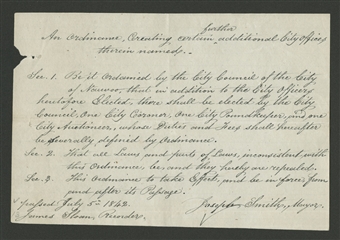 further
An Ordinance, Creating certain additional City Officers
therein named.
Sec. 1. Be it Ordained by the City Council of the City
of Nauvoo, that in addition to the City Officers
heretofore Elected, there shall be elected by the City
Council, One City Coroner, One City Poundkeeper, and one
City Auctioneer, whose Duties and Fees shall hereafter
be severally defined by Ordinance.
Sec. 2. That all Laws and parts of Laws, inconsistent with
this Ordinance, be, and they hereby are repealed.
Sec. 3. This Ordinance to take Effect, and be in force, from
and after its Passage.
Passed July 5th 1842. Joseph Smith, Mayor.
James Sloan, Recorder.